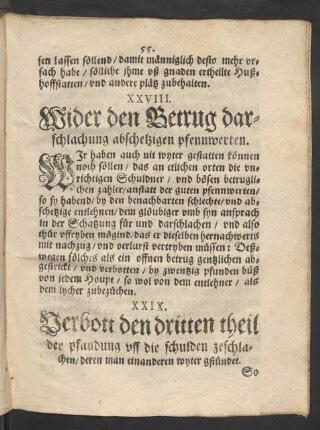 55.
sen lassen söllend / damit männiglich desto mehr vr-
sach habe / sölliche jhme vß gnaden ertheilte Huß-
hoffstatten / vnd andere plätz zubehalten.
XXVIII.
Wider den Betrug dar-
schlachung abschetzigen pfennwerten.
WIr haben auch nit wyter gestatten können
noch söllen / das an etlichen orten die vn-
richtigen Schuldner / vnd bösen betrugli-
chen zahler / anstatt der guten pfennwerten /
so sy habend / by den benachbarten schlechte / vnd ab-
schetzige entlehnen / dem glöubiger vmb syn ansprach
in der Schatzung für vnd darschlachen / vnd also
thür offryben mögind / das er dieselben hernachwerts
mit nachzug / vnd verlurst vertryben müssen: Deß-
wegen sölches als ein offnen betrug gentzlichen ab-
gestrickt / vnd verbotten / by zwentzig pfunden büß
von jedem Houpt / so wol von dem entlehner / als
dem lycher zubezüchen.
XXIX.
Verbott den dritten theil
der pfandung vff die schulden zeschla-
chen / deren man einanderen wyter gstündet.
So